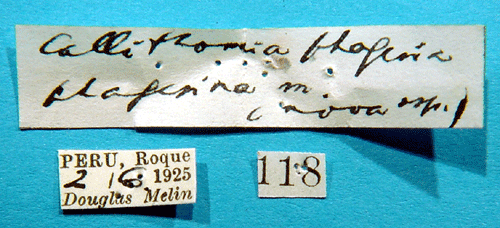 Callithomia phagesia
phagesina m.
(nova ssp.)
PERU, Roque
2/6 1925
Douglas Melin
118